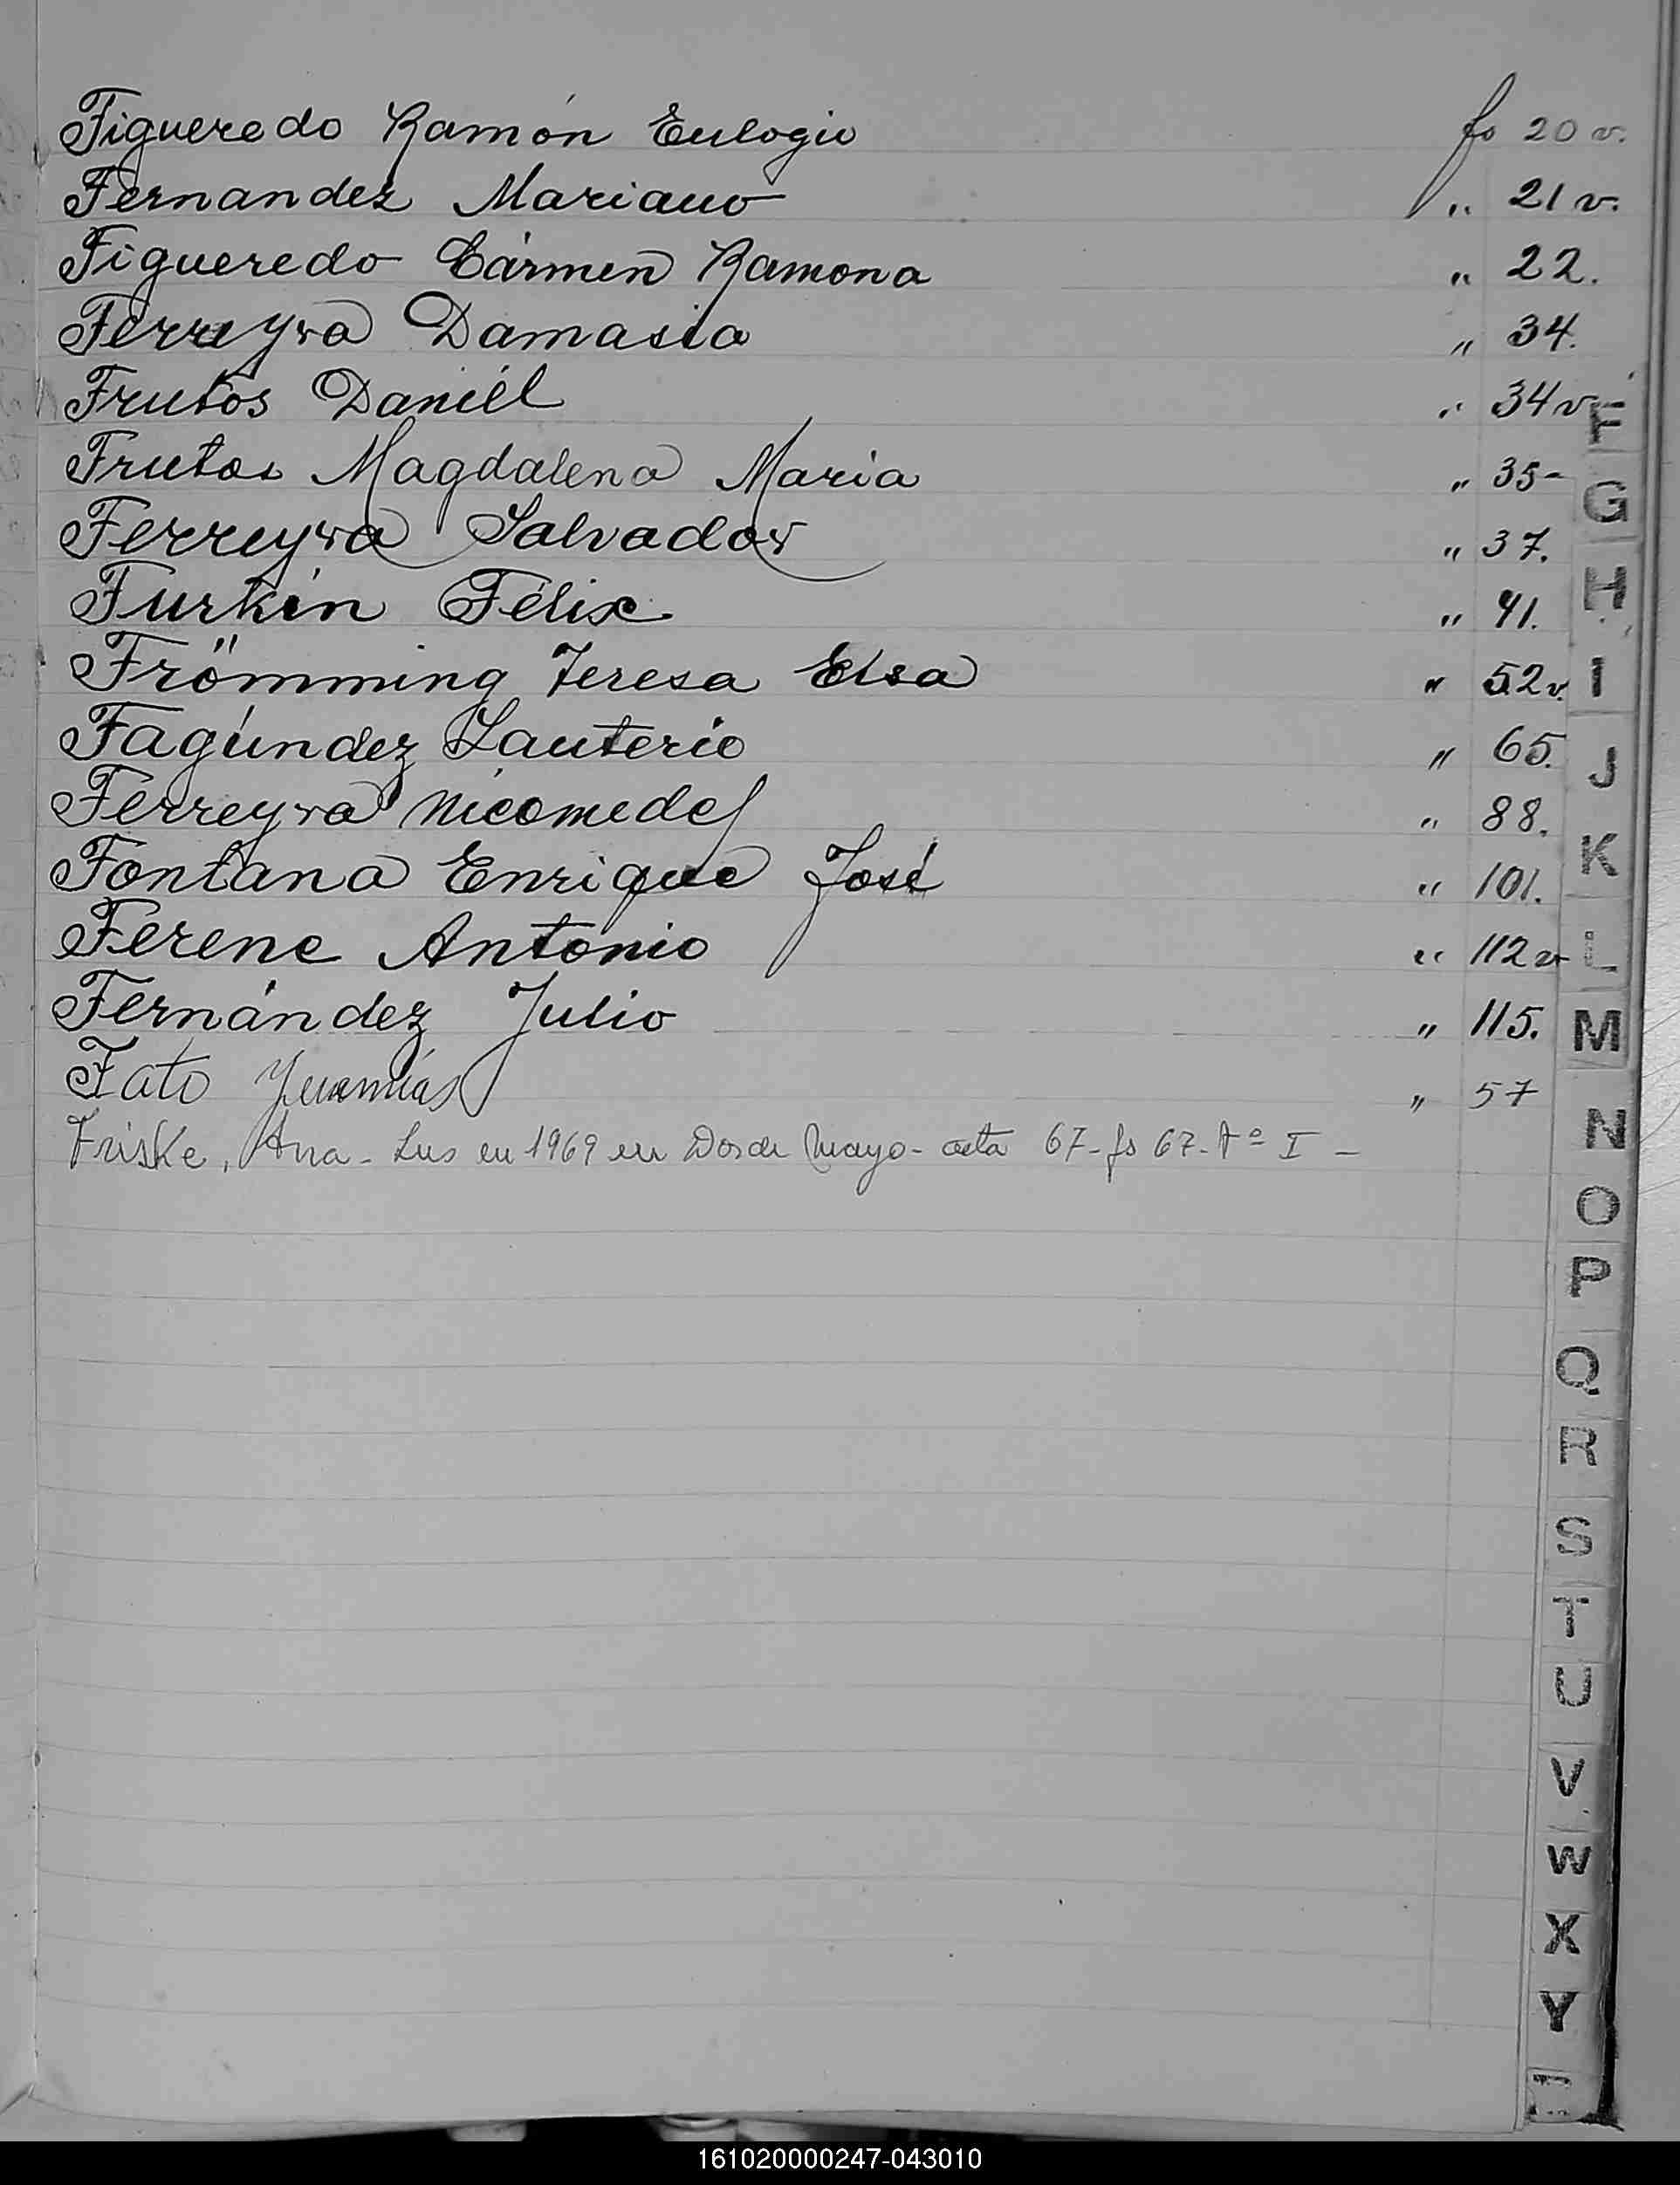 Figueredo Ramón Eulogio fo 20 v.
Fernandez Mariano „ 21 v.
Figueredo Cármen Ramona „ 22.
Ferreyra Damasia „ 34.
Frutos Daniél „ 34 v
Frutos Magdalena Maria „ 35-
Ferreyra Salvador „ 37.
Furkin Félix „ 41.
Frömming Teresa Elsa „ 52 v.
Fagúndez Lauterio „ 65.
Ferreyra Nicomedes „ 88.
Fontana Enrique José „ 101.
Ferenc Antonio „ 112 v
Fernández Julio „ 115.
Fato „ 57
Friske, Ana - Ins en 1969 en Dos de Mayo - acta 67 - fo 67 - tº I -
F
G
H
I
J
K
L
M
N
O
P
Q
R
S
T
U
V
W
X
Y
161020000247-043010